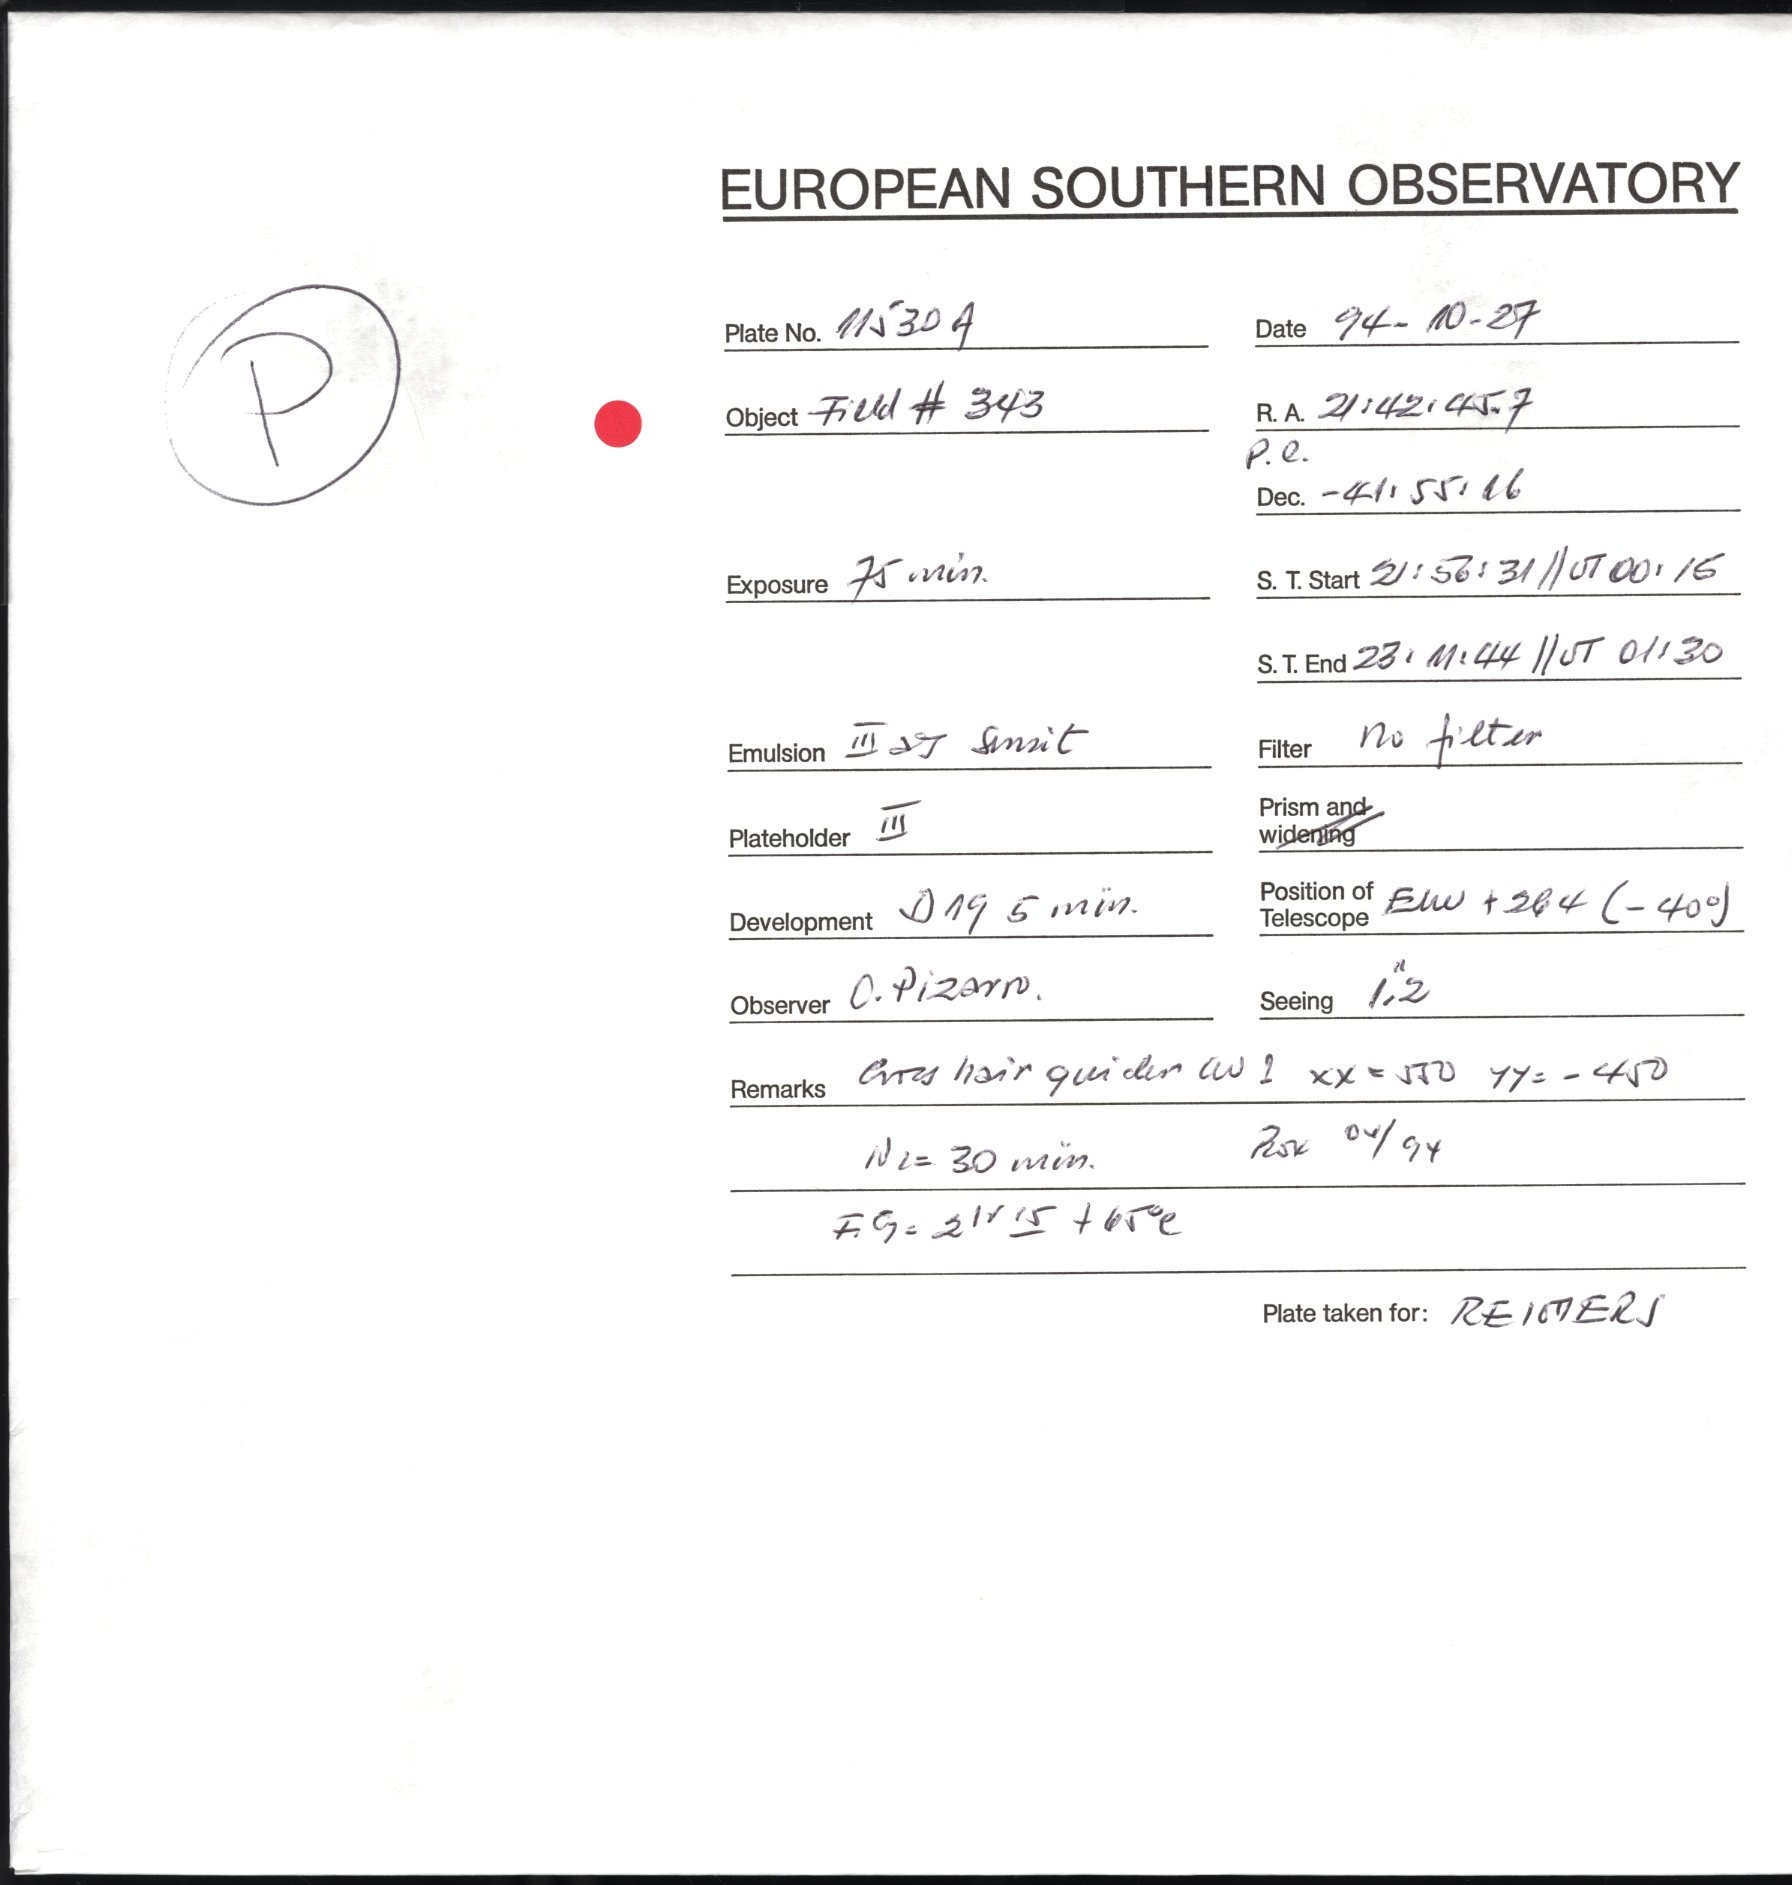 EUROPEAN SOUTHERN OBSERVATORY
P
Plate No. 11530 A
Date 94-10-27
Object Field # 343
R. A. 21:42:45.7
P.E.
Dec. -41:55:16
Exposure 75 min.
S. T. Start 21:56:31 // UT 00:16
S. T. End 23:11:44 // UT 01:30
Emulsion III aJ Sensit
Filter No filter
Plateholder III
Prism and widening
Development D19 5 min.
Position of Telescope EW +264 (-40°)
Observer O. Pizarro.
Seeing 1".2
Remarks Cross hair guider CW 1 xx = 550 yy = -450
N2 = 30 min. Box 04/94
F.G = 2 Hr 15 +65°C
Plate taken for: REIMERS